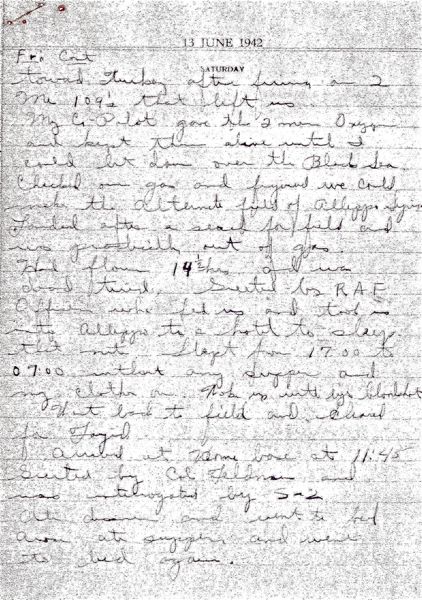 13 JUNE 1942
SATURDAY
Fro Cont
toward Turkey after firing on 2
Me 109's that left us
My Co-Pilot gave the 2 men Oxygen
and kept them alive until I
could let down over the Black Sea.
Checked our gas and figured we could
make the Alternate field of Alleppo Syria
Landed after a search for field and
was practically out of gas.
Had flown 14½ hrs and was
dead tired. Greeted by R.A.F.
Officers who fed us and took us
into Alleppo to a hotll to sleep
that nite. Slept from 17:00 to
07:00 without any supper and
my clothes on. Woke up with eyes bloodshot
Went back to field and cleared
for Fayid.
Arrived at Home base at 11:45
Greeted by Col Feldman and
was interrogated by S-2
Ate dinner and went to bed
Arose at supper and went
to bed again.